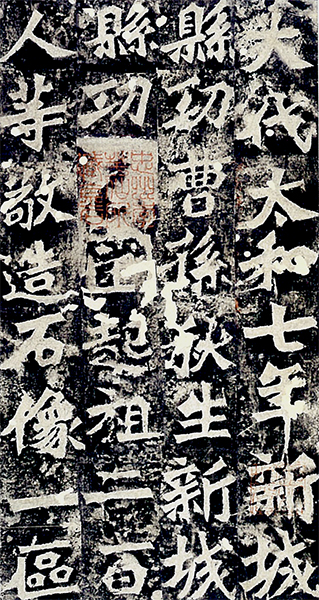 大代太和七年新城
縣功曹孫秋生新城
縣功起祖二百
人等敬造石像一區